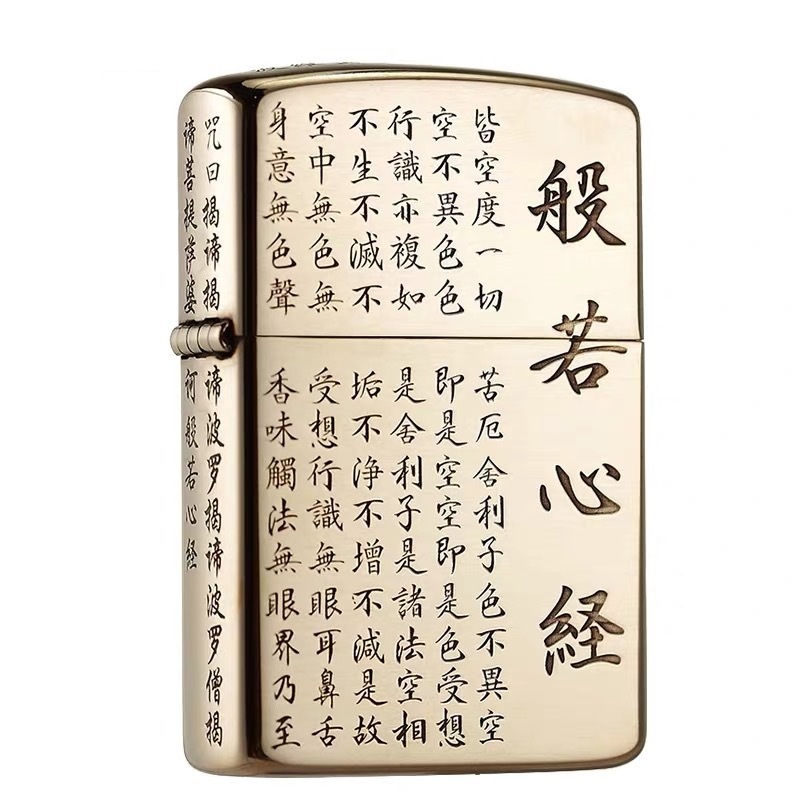 般若心経
皆空度一切苦厄舍利子色不異空
空不異色色即是空空即是色受想
行識亦複如是舍利子是諸法空相
不生不滅不垢不浄不增不減是故
空中無色無受想行識無眼耳鼻舌
身意無色聲香味觸法無眼界乃至
咒曰揭谛揭谛波罗揭谛波罗僧揭
谛菩提萨婆诃般若心経